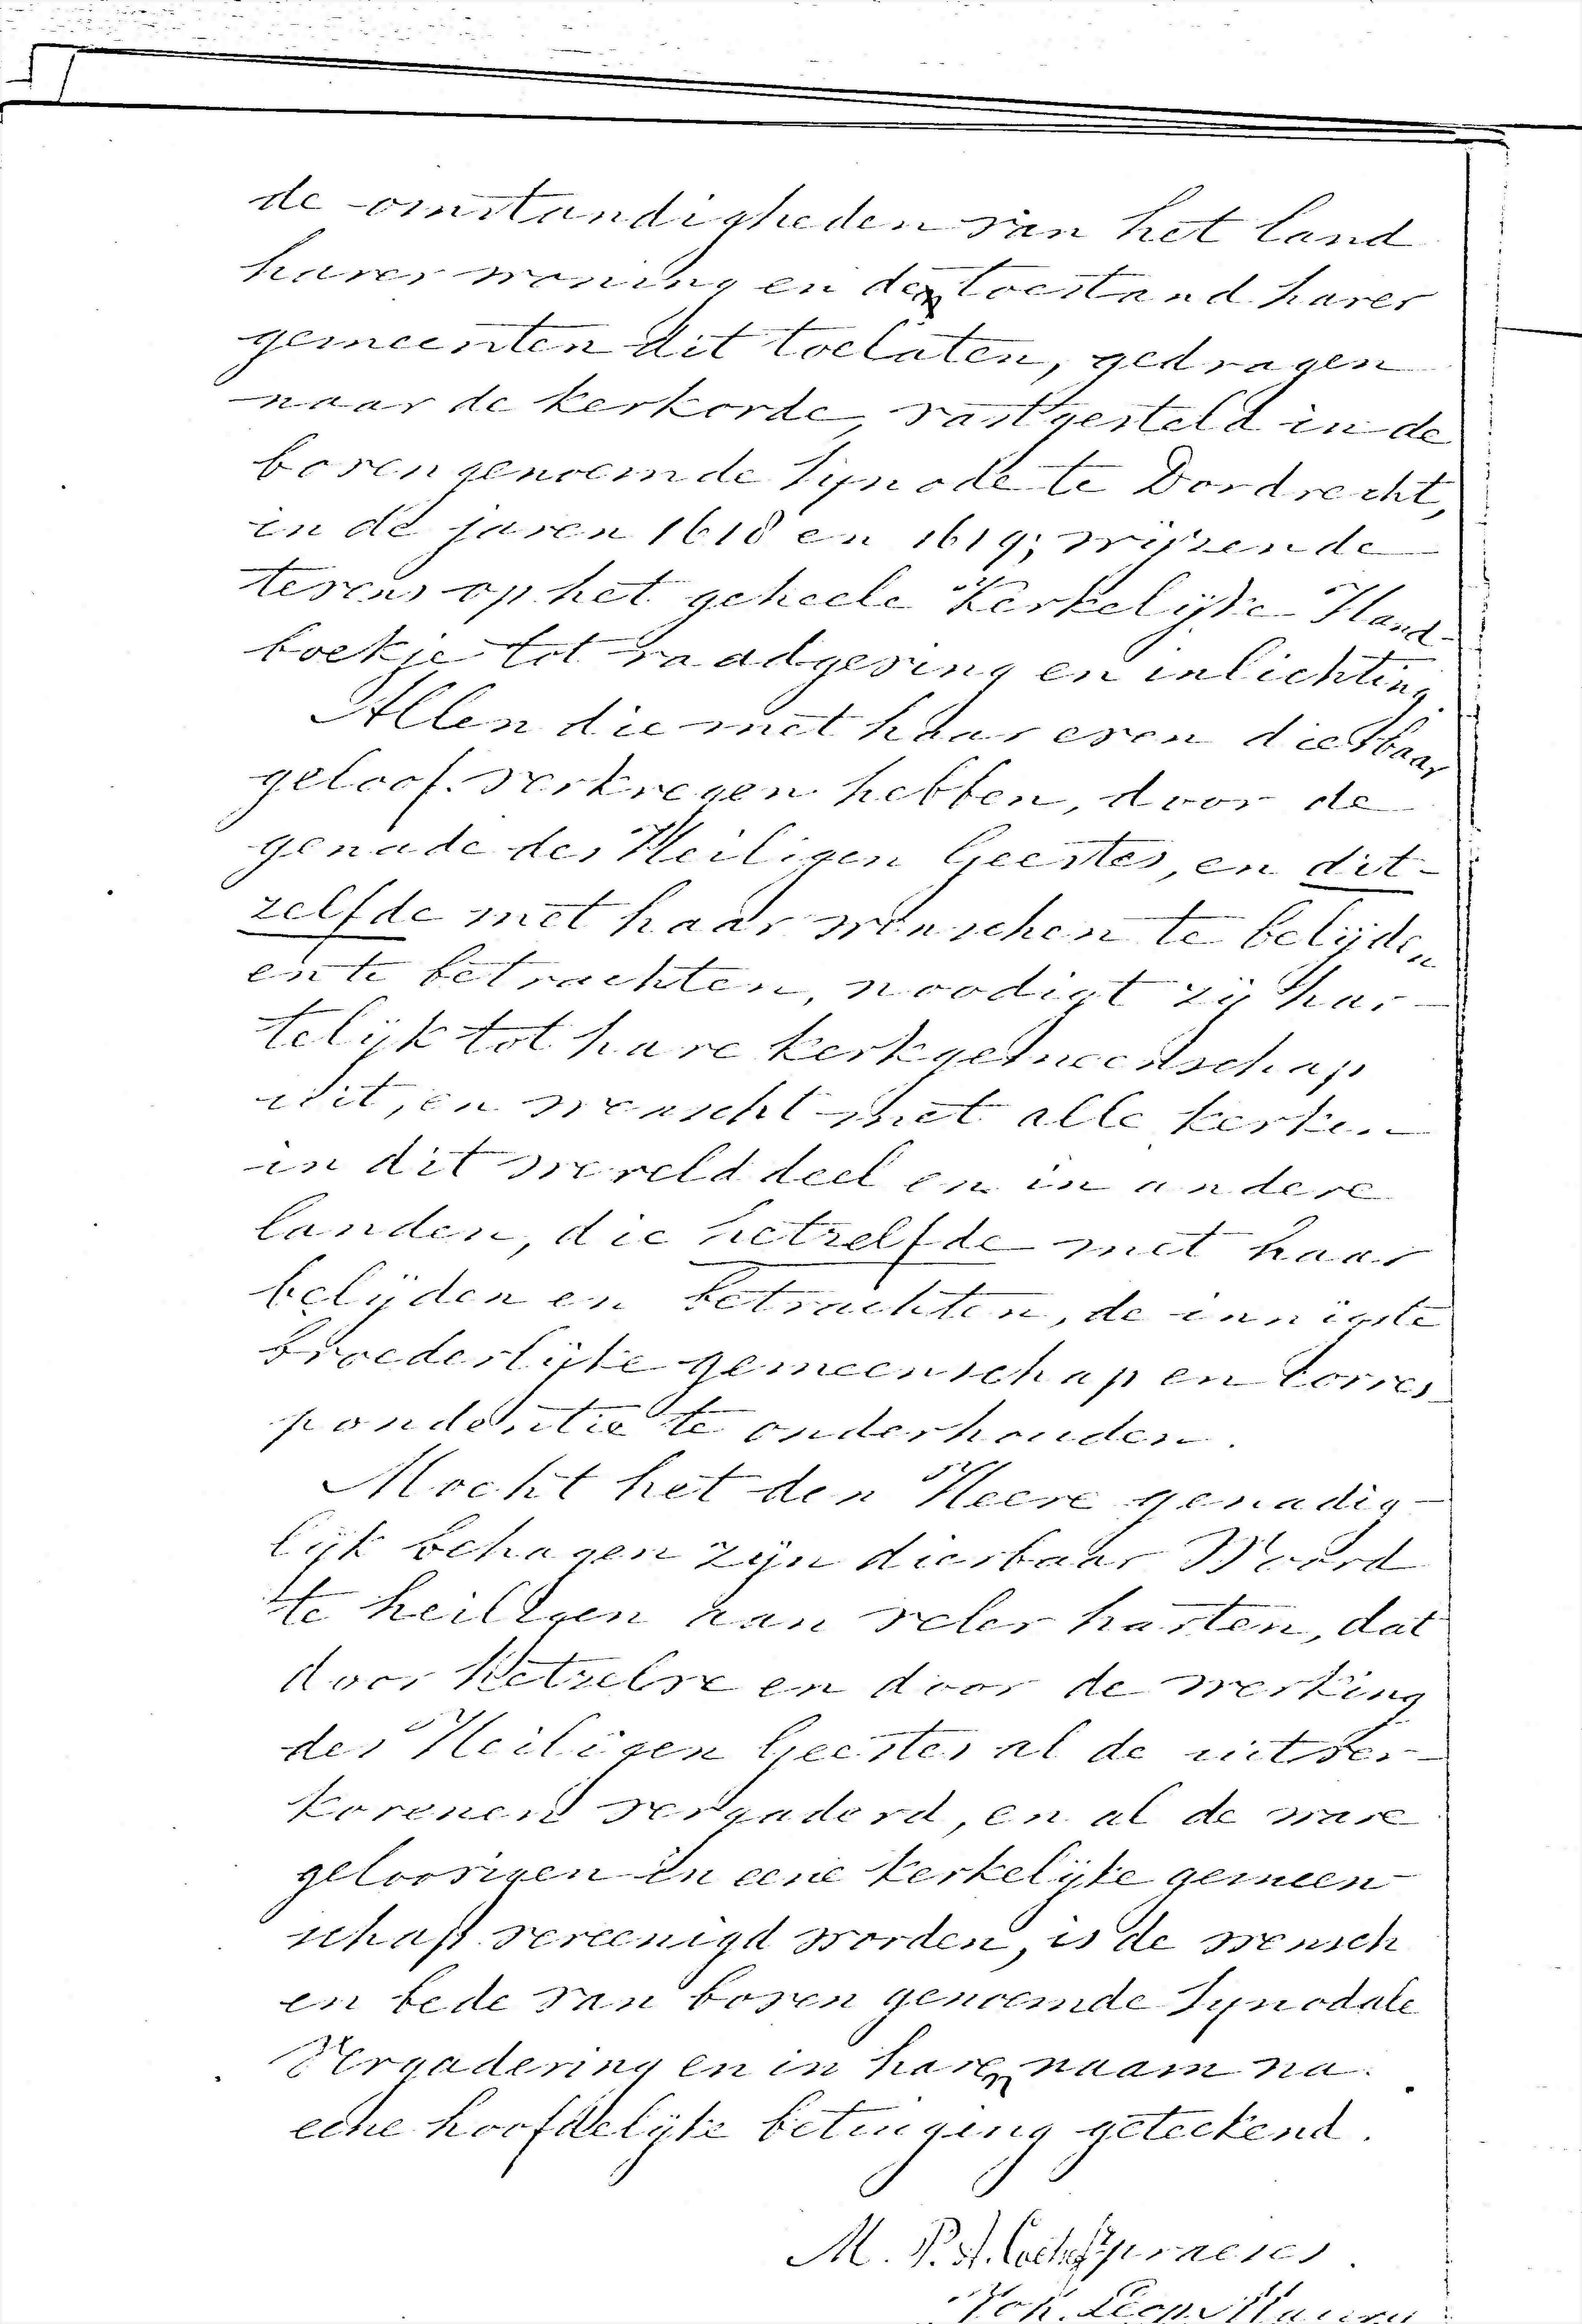 de omstandigheden van het land
harer woning en den toestand harer
gemeenten dit toelaten, gedragen
naar de kerkorde, vastgesteld in de
bovengenoemde Synode te Dordrecht,
in de jaren 1618 en 1619; wijzende
tevens op het geheele Kerkelijke Hand-
boekje tot raadgeving en inlichting.
Allen die met haar even dierbaar
geloof verkregen hebben, door de
genade des Heiligen Geestes, en dit-
zelfde met haar wenschen te belijden
en te betrachten, noodigt zij har-
telijk tot hare kerkgemeenschap
uit, en wenscht met alle kerken
in dit werelddeel en in andere
landen, die hetzelfde met haar
belijden en betrachten, de innigste
broederlijke gemeenschap en corres-
pondentie te onderhouden.
Mocht het den Heere genadig-
lijk behagen zijn dierbaar Woord
te heiligen aan veler harten, dat
door hetzelve en door de werking
des Heiligen Geestes al de uitver-
korenen vergaderd, en al de ware
geloovigen in eene kerkelijke gemeen
schap vereenigd worden, is de wensch
en bede van boven genoemde Synodale
Vergadering en in haren naam na
eene hoofdelijke betuiging geteekend.
M. P. A. Coetsee praeses.
Joh.